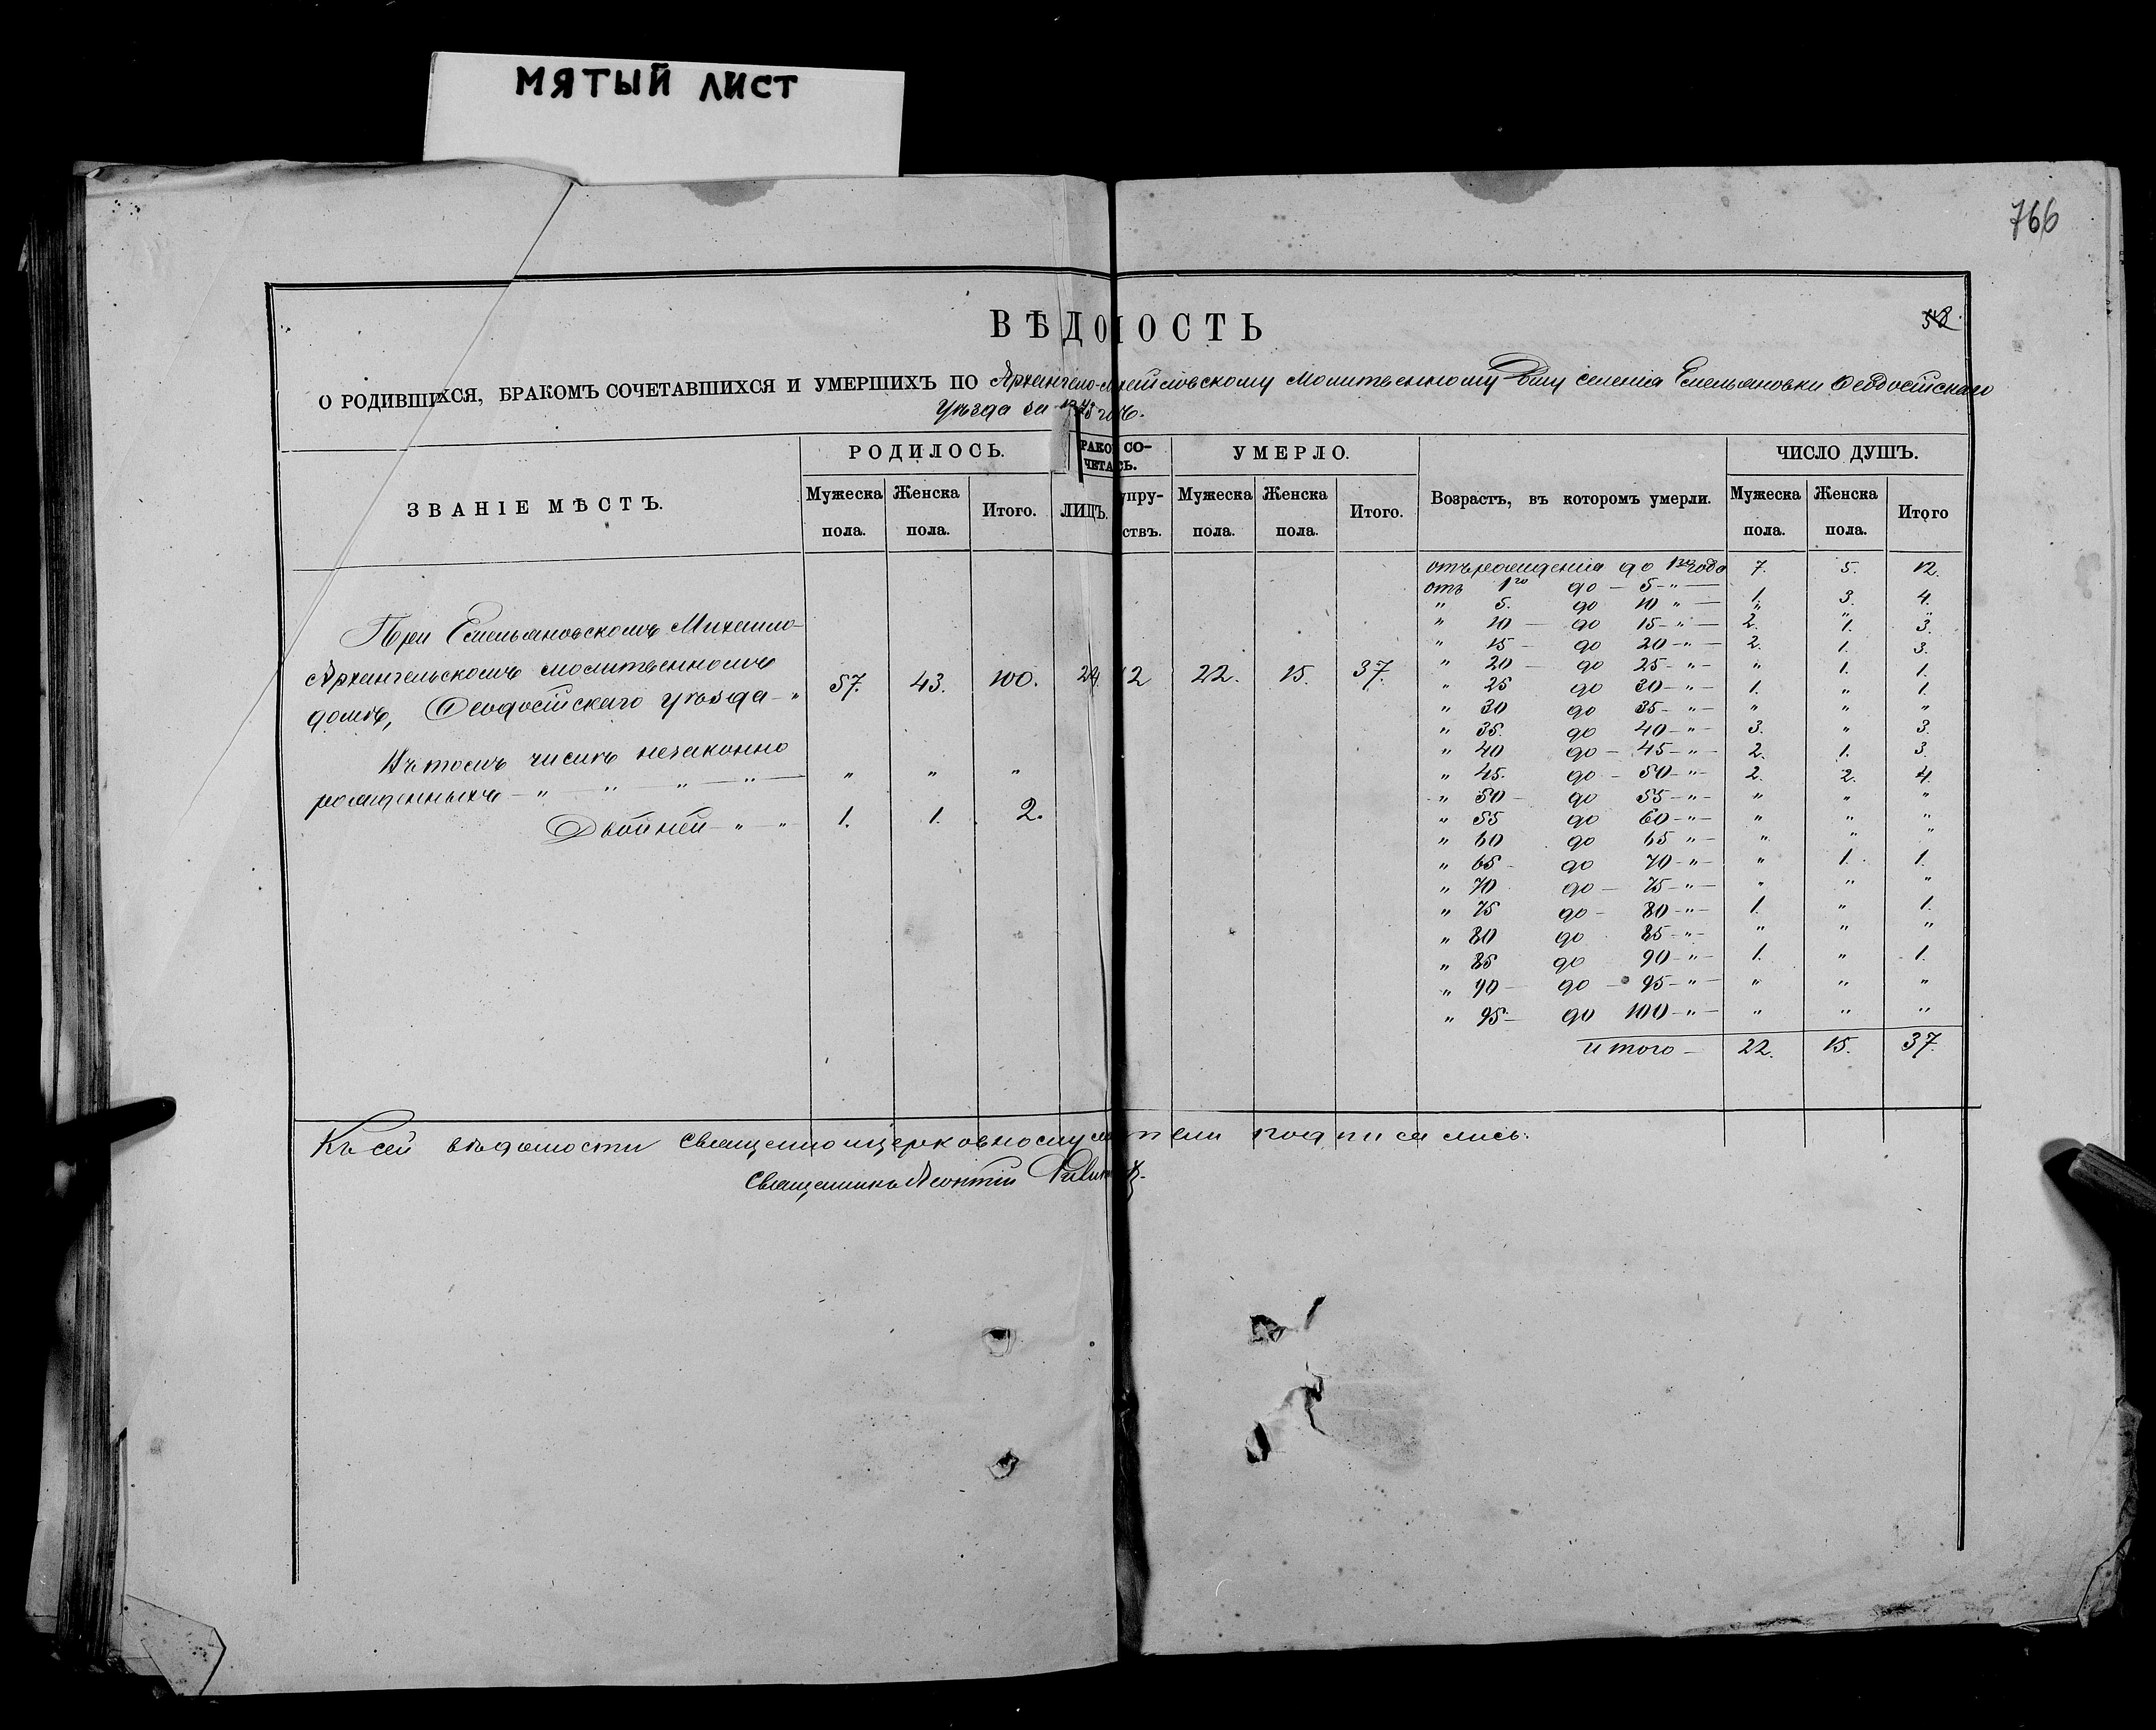 МЯТЫЙ ЛИСТ
766
ВѢДОМОСТЬ
53
О РОДИВШИХСЯ, БРАКОМЪ СОЧЕТАВШИХСЯ И УМЕРШИХЪ ПО Архангело-Михайловскому Молитвенному Дому селенія Емельяновки Ѳеодосійскаго
Уѣзда за годъ.
ЗВАНІЕ МѢСТЪ. РОДИЛОСЬ. РАКО СО- ЧЕТА СЬ. УМЕРЛО. Возрастъ, въ которомъ умерли. ЧИСЛО ДУШЪ.
Мужеска пола. Женска пола. Итого. ЛИЦЪ. упру- ствъ. Мужеска пола. Женска пола. Итого. Мужеска пола. Женска пола. Итого
отъ рожденія до 1го года 7. 5. 12.
отъ 1го до - 5 - " - 1. 3. 4.
" 5. до 10 " - " " "
" 10 - до 15 - " - 2. 1. 3.
" 15 - до 20 - " - 2. 1. 3.
" 20 - до 25 - " - " 1. 1.
" 25 до 30 - " - 1. " 1.
" 30 до 35 - " - " " "
" 35. до 40 - " - 3. " 3.
" 40 до - 45 - " - 2. 1. 3.
" 45. до - 50 - " - 2. 2. 4.
" 50 - до 55 - " - " " "
" 55 до 60 - " - " " "
" 60 до 65 " - " " "
" 65 - до 70 - " - " 1. 1.
" 70 до - 75 - " - " " "
" 75 до - 80 - " - 1. " 1.
" 80 до 85 - " - " " "
" 85 до 90 - " - 1. " 1.
" 90 - до - 95 - " - " " "
" 95 - до 100 - " - " " "
итого - 22. 15. 37.
При Емельяновскомъ Михаило-
Архангельскомъ молитвенномъ
домѣ, Ѳеодосійскаго уѣзда - " 57. 43. 100. 24. 12 22. 15. 37.
Въ томъ числѣ незаконно
рожденныхъ - " " " " - " " "
Двойней - " - " 1. 1. 2.
Къ сей вѣдомости священноицерковнослужители подписались:
Священникъ Леонтій